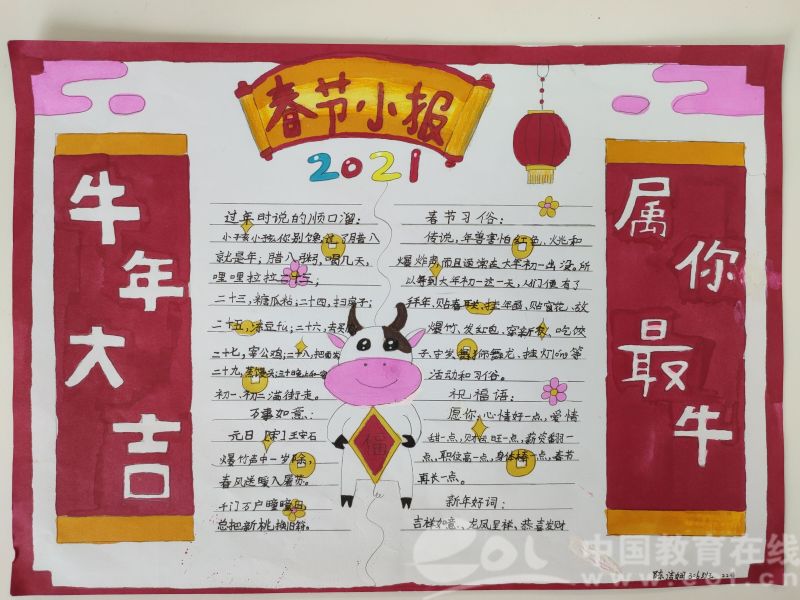 春节小报
2021
牛年大吉
过年时说的顺口溜:
小孩小孩你别馋,过了腊八
就是年,腊八粥,喝几天,
哩哩拉拉二十三;
二十三,糖瓜粘;二十四,扫房子;
二十五,冻豆
二十七,宰公鸡;二十八,把面发
二十九,蒸馒头;三十晚上
初一、初二满街走。
万事如意:
元日 [宋] 王安石
爆竹声中一岁除,
春风送暖入屠苏。
千门万户曈曈日,
总把新桃换旧符。
春节习俗:
传说,年兽害怕红色、火光和
爆炸声而且通常在大年初一出没。所
以每到大年初一这一天,人们便有了
拜年、贴春联、挂年画、贴窗花、放
爆竹、发红包、穿新衣、吃饺
子、守岁、舞狮舞龙、挂灯笼等
活动和习俗。
祝福语:
愿你:心情好一点,爱情
甜一点,财运旺一点,薪资翻一
点,职位高一点,身体棒一点,春节
再长一点。
新年好词:
吉祥如意、龙凤呈祥、恭喜发财
属你最牛
福
中国教育在线
www.eol.cn